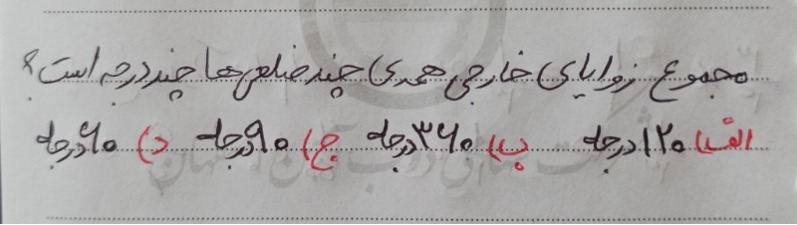 مجموع زوایای خارجی همه‌ی چندضلعی‌ها چند درجه است؟
الف) ۱۲۰ درجه ب) ۳۶۰ درجه ج) ۹۰ درجه د) ۶۰ درجه